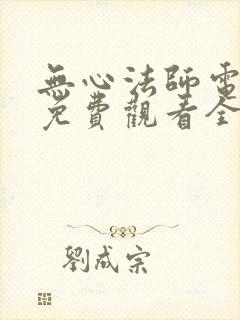 無心法師電
免費觀看全
劉成宗